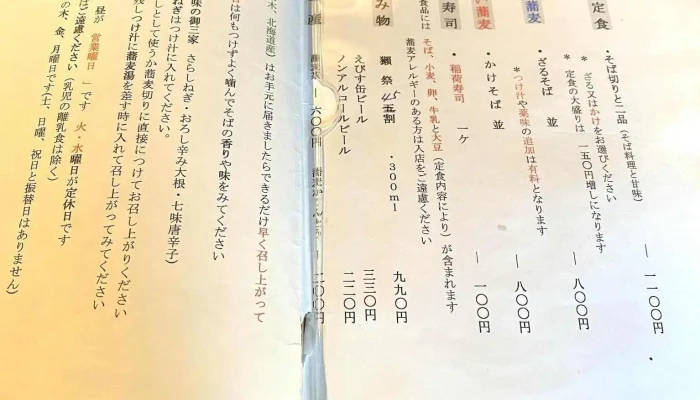 定食
・そば切りと二品（そば料理と甘味） 一一〇〇円
＊ざる又はかけをお選びください
＊定食の大盛りは 一五〇円増しになります
蕎麦
・ざるそば 並 八〇〇円
＊つけ汁や薬味の追加は有料となります
い蕎麦
・かけそば 並 八〇〇円
寿司
・稲荷寿司 一ヶ 一〇〇円
食品には そば、小麦、卵、牛乳と大豆（定食内容により）が含まれます
蕎麦アレルギーのある方は入店をご遠慮ください
み物
獺祭 ・300ml 九九〇円
えびす缶ビール 三三〇円
ノンアルコールビール 二二〇円
六〇〇円
二〇〇円
木、北海道産）はお手元に届きましたらできるだけ早く召し上がって
は何もつけずよく噛んでそばの香りや味をみてください
味の御三家 さらしねぎ・おろし辛み大根・七味唐辛子）
ねぎはつけ汁に入れてください。
しとして使うか蕎麦切りに直接につけてお召し上がりください
残しつけ汁に蕎麦湯を差す時に入れて召し上がってみてください
昼が 営業曜日 です 火・水曜日が定休日です
はご遠慮ください（乳児の離乳食は除く）
の木、金、月曜日です（土、日曜、祝日と振替日はありません）